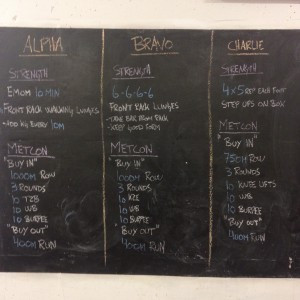 ALPHA
STRENGTH
EMOM 10 MIN
FRONT RACK WALKING LUNGES
KG EVERY 10M
METCON
"BUY IN"
1000M ROW
3 ROUNDS
10 T2B
10 WB
10 BURPEE
"BUY OUT"
400M RUN
BRAVO
STRENGTH
6-6-6-6
FRONT RACK LUNGES
- TAKE BAR FROM RACK
- VERY GOOD FORM
METCON
"BUY IN"
1000M ROW
3 ROUNDS
10 K2E
10 WB
10 BURPEE
"BUY OUT"
400M RUN
CHARLIE
STRENGTH
4x5 REP EACH FOOT
STEP UPS ON BOX
METCON
"BUY IN"
750M ROW
3 ROUNDS
10 KNEE LIFTS
10 WB
10 BURPEE
"BUY OUT"
400M RUN